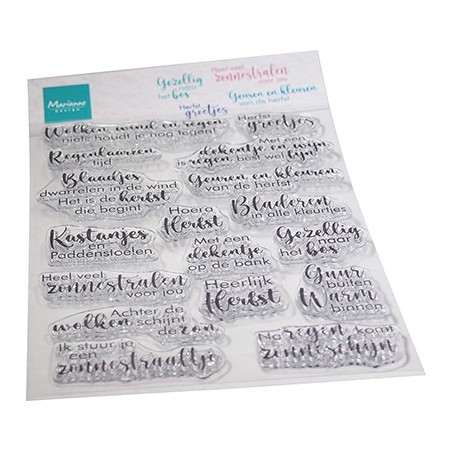 Marianne
DESIGN
Gezellig
naar
het bos
Heel veel
zonnestralen
voor jou
Herfst
groetjes
Geuren en kleuren
van de herfst
Wolken wind en regen
niets houdt je nog tegen!
Herfst
groetjes
Regenlaarzen
tijd
Met een
dekentje en wijn
is regen best wel fijn
Blaadjes
dwarrelen in de wind
Het is de herfst
die begint
Geuren en kleuren
van de herfst
Hoera
Herfst
Bladeren
in alle kleurtjes
Kastanjes
en
Paddenstoelen
Met een
dekentje
op de bank
Gezellig
naar
het bos
Heel veel
zonnestralen
voor jou
Heerlijk
Herfst
Guur
buiten
Warm
binnen
Achter de
wolken schijnt
de zon
Ik stuur je
een
zonnestraaltje
Na regen komt
zonneschijn